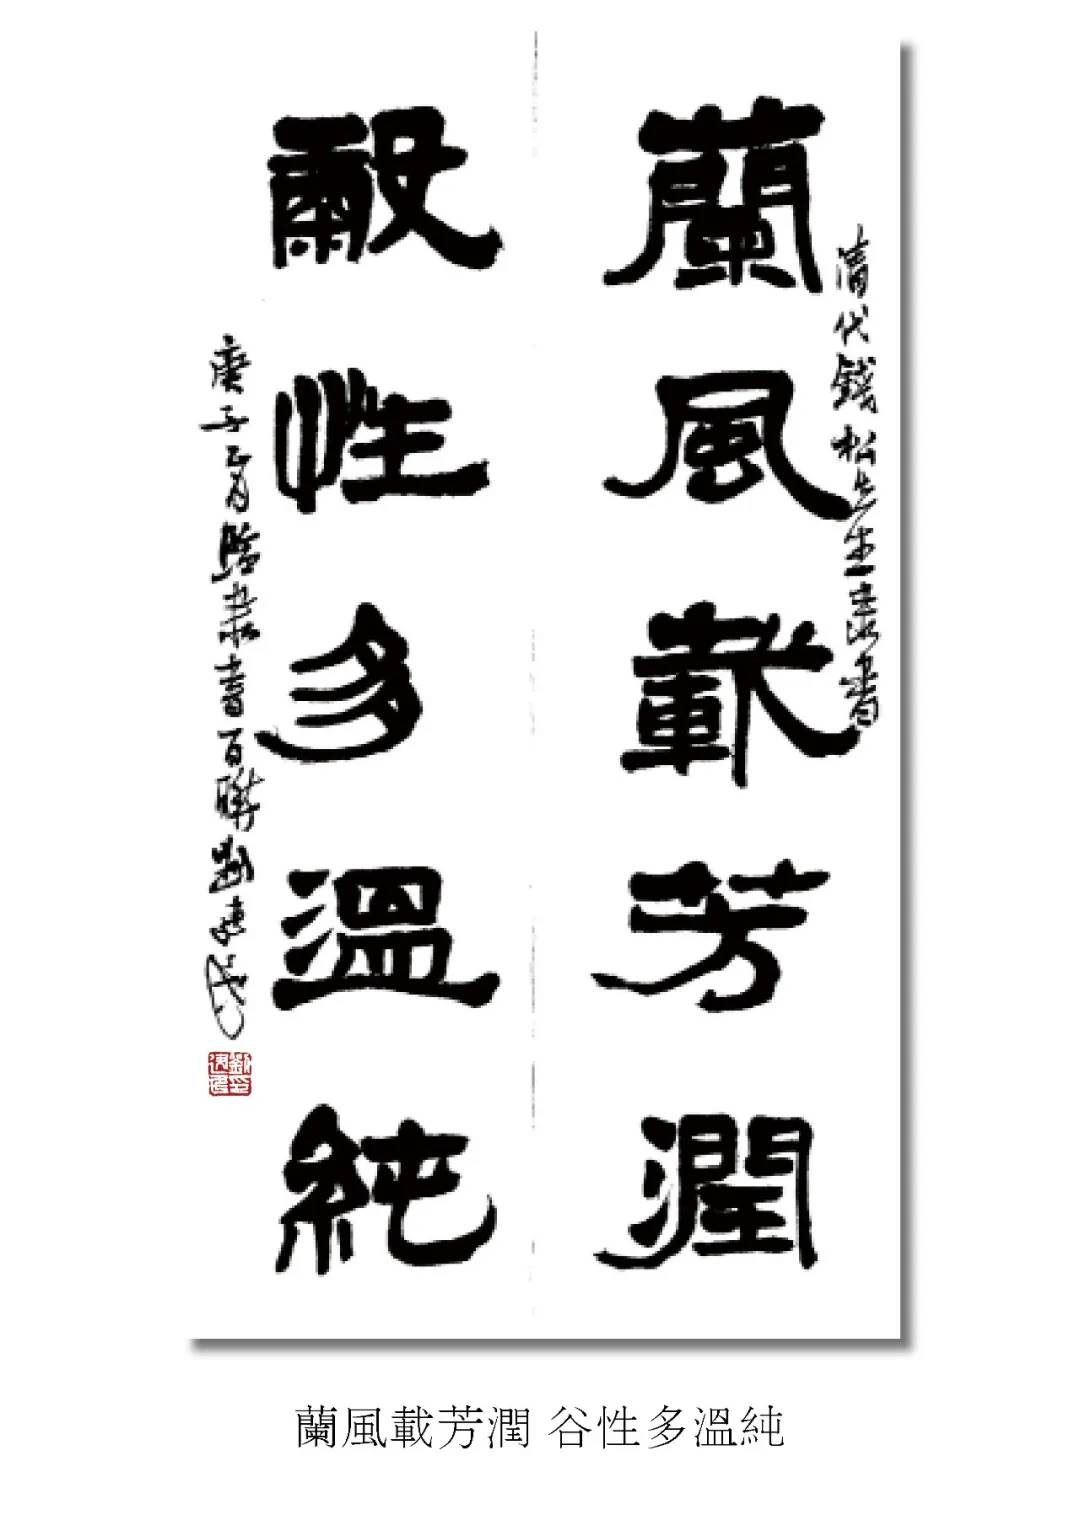 清代錢松先生隸書
蘭風載芳潤
性多溫純
庚子正月臨隸書百聯劉
蘭風載芳潤 谷性多溫純